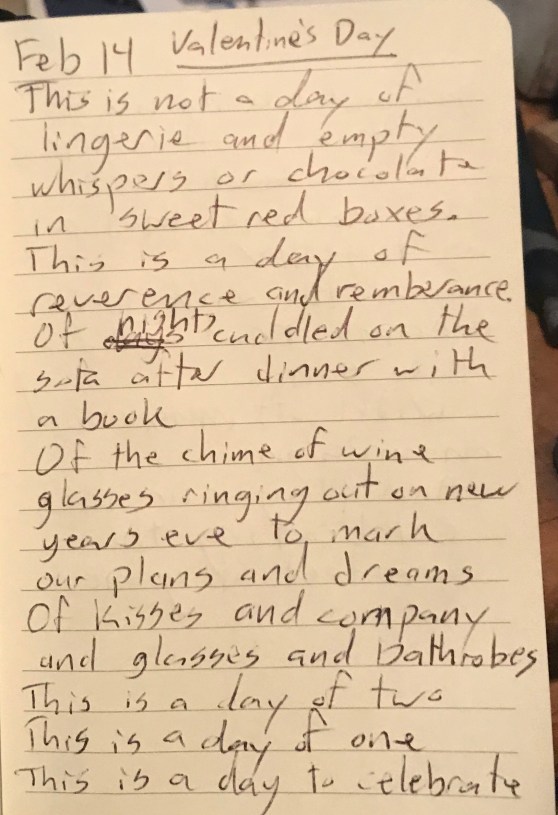 Feb 14 Valentine's Day
This is not a day of
lingerie and empty
whispers or chocolate
in sweet red boxes.
This is a day of
reverence and remberance.
Of nights cuddled on the
sofa after dinner with
a book
Of the chime of wine
glasses ringing out on new
years eve to mark
our plans and dreams
Of kisses and company
and glasses and bathrobes
This is a day of two
This is a day of one
This is a day to celebrate